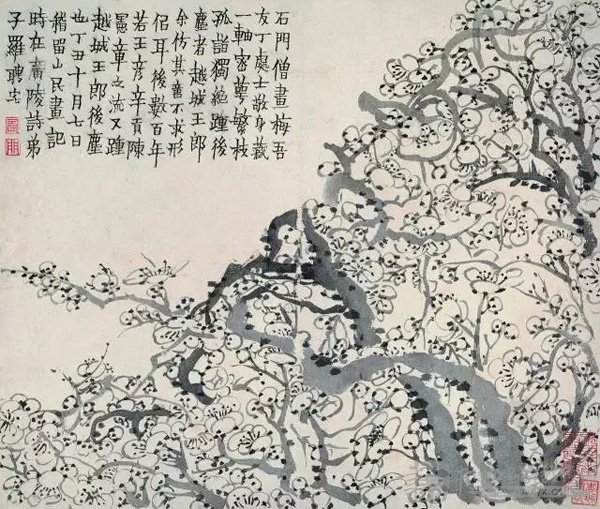 石門僧畫梅吾
友丁處士敬身藏
一軸密萼繁枝
孤詣獨絕踵後
塵者越城王郎
余仿其不求形
佀耳後數百年
若王彥辛貢陳
愚章之流又踵
越城王郎後塵
也丁丑十月七日
稽留山民畫記
時在廣陵詩弟
子羅聘